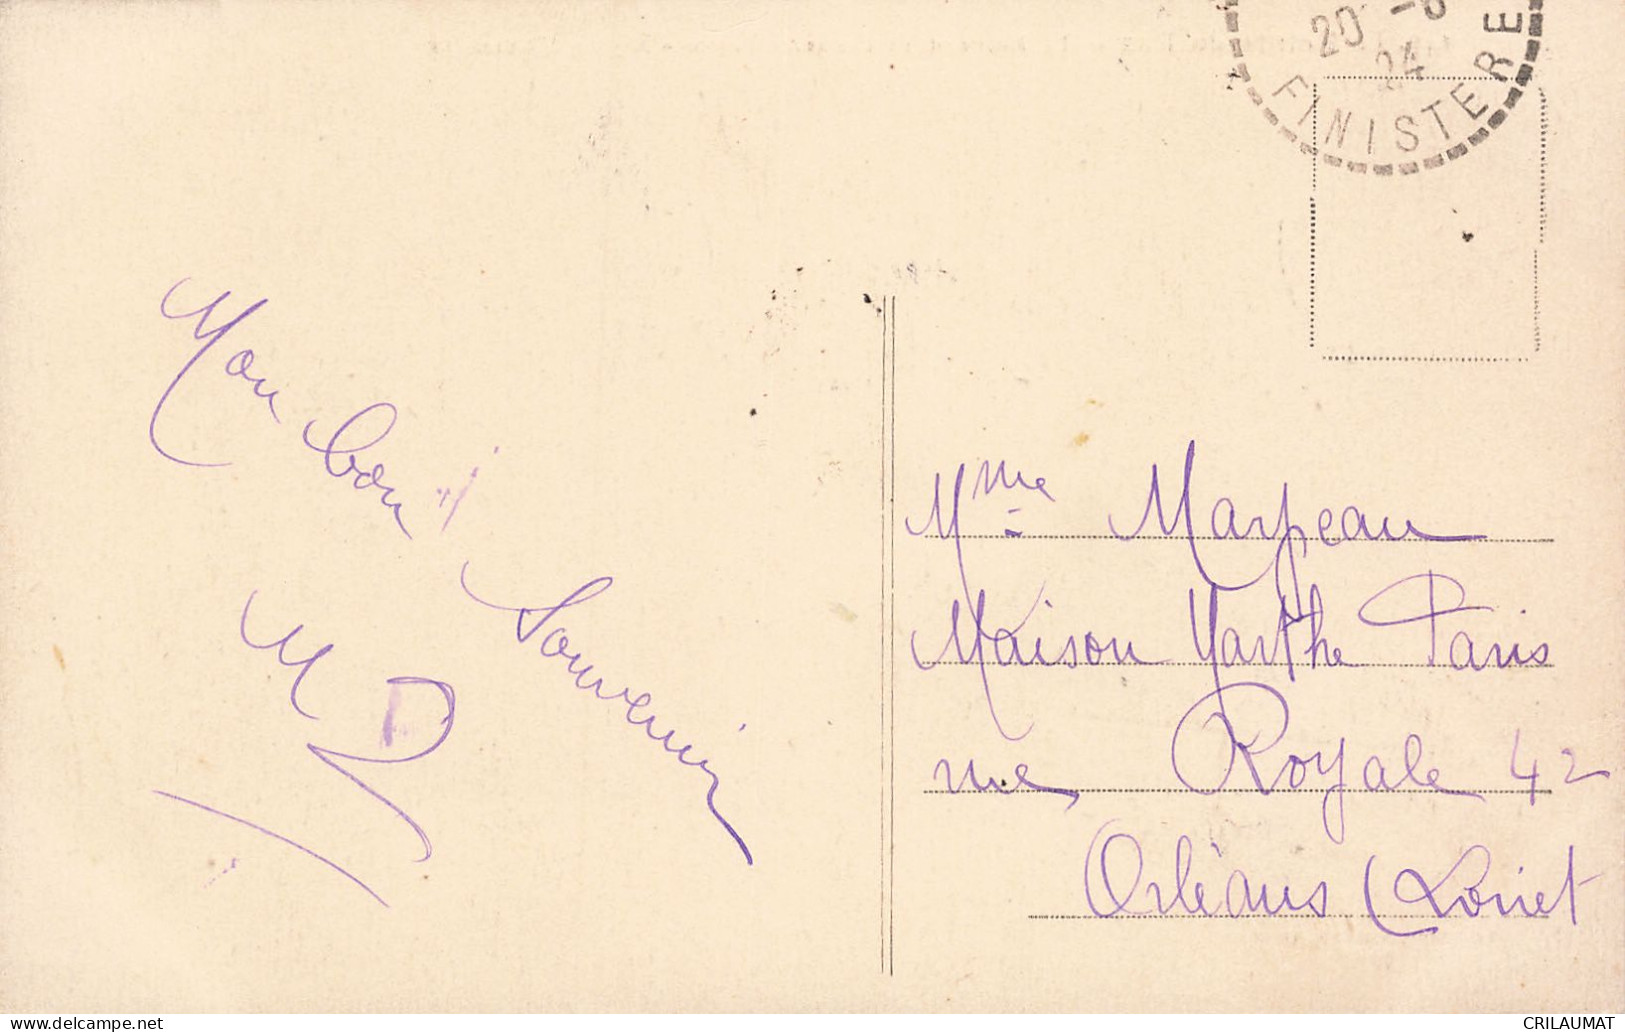 20
24
FINISTERE
Mon bon Souvenir
M
Mme Marpeau
Maison Marthe Paris
rue Royale 42
Orléans (Loiret
https://www.delcampe.net
CRILAUMAT